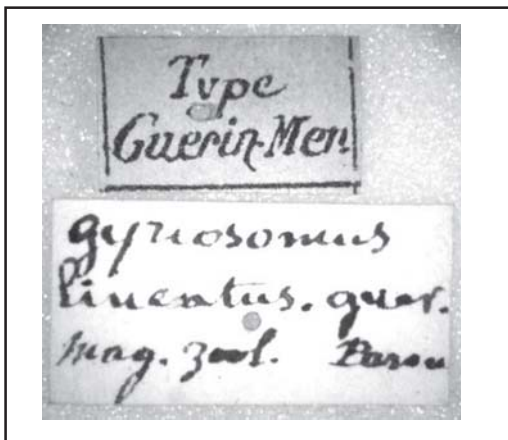 Type
Guerin-Men
gyriosomus
lineatus. guer.
mag. zool.